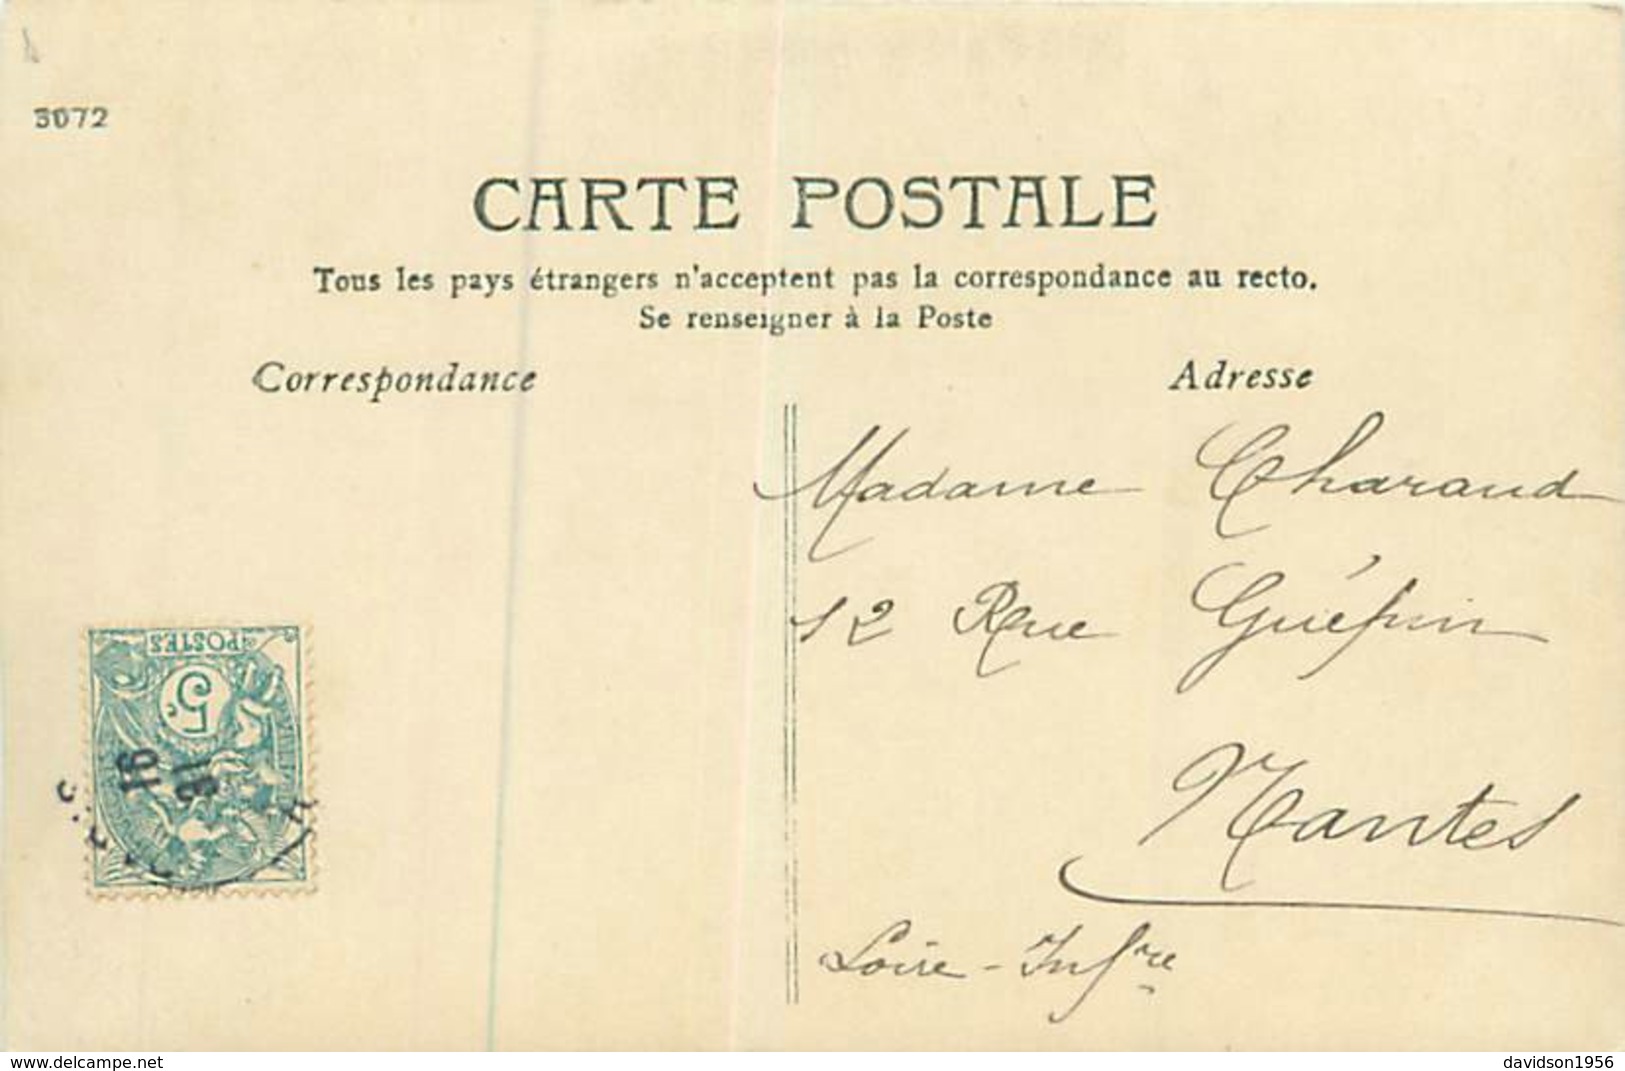 3072
CARTE POSTALE
Tous les pays étrangers n'acceptent pas la correspondance au recto.
Se renseigner à la Poste
Correspondance
Adresse
Madame Charaud
12 Rue Guépin
Nantes
Loire-Infre
POSTES
5c
16
31
www.delcampe.net
davidson1956